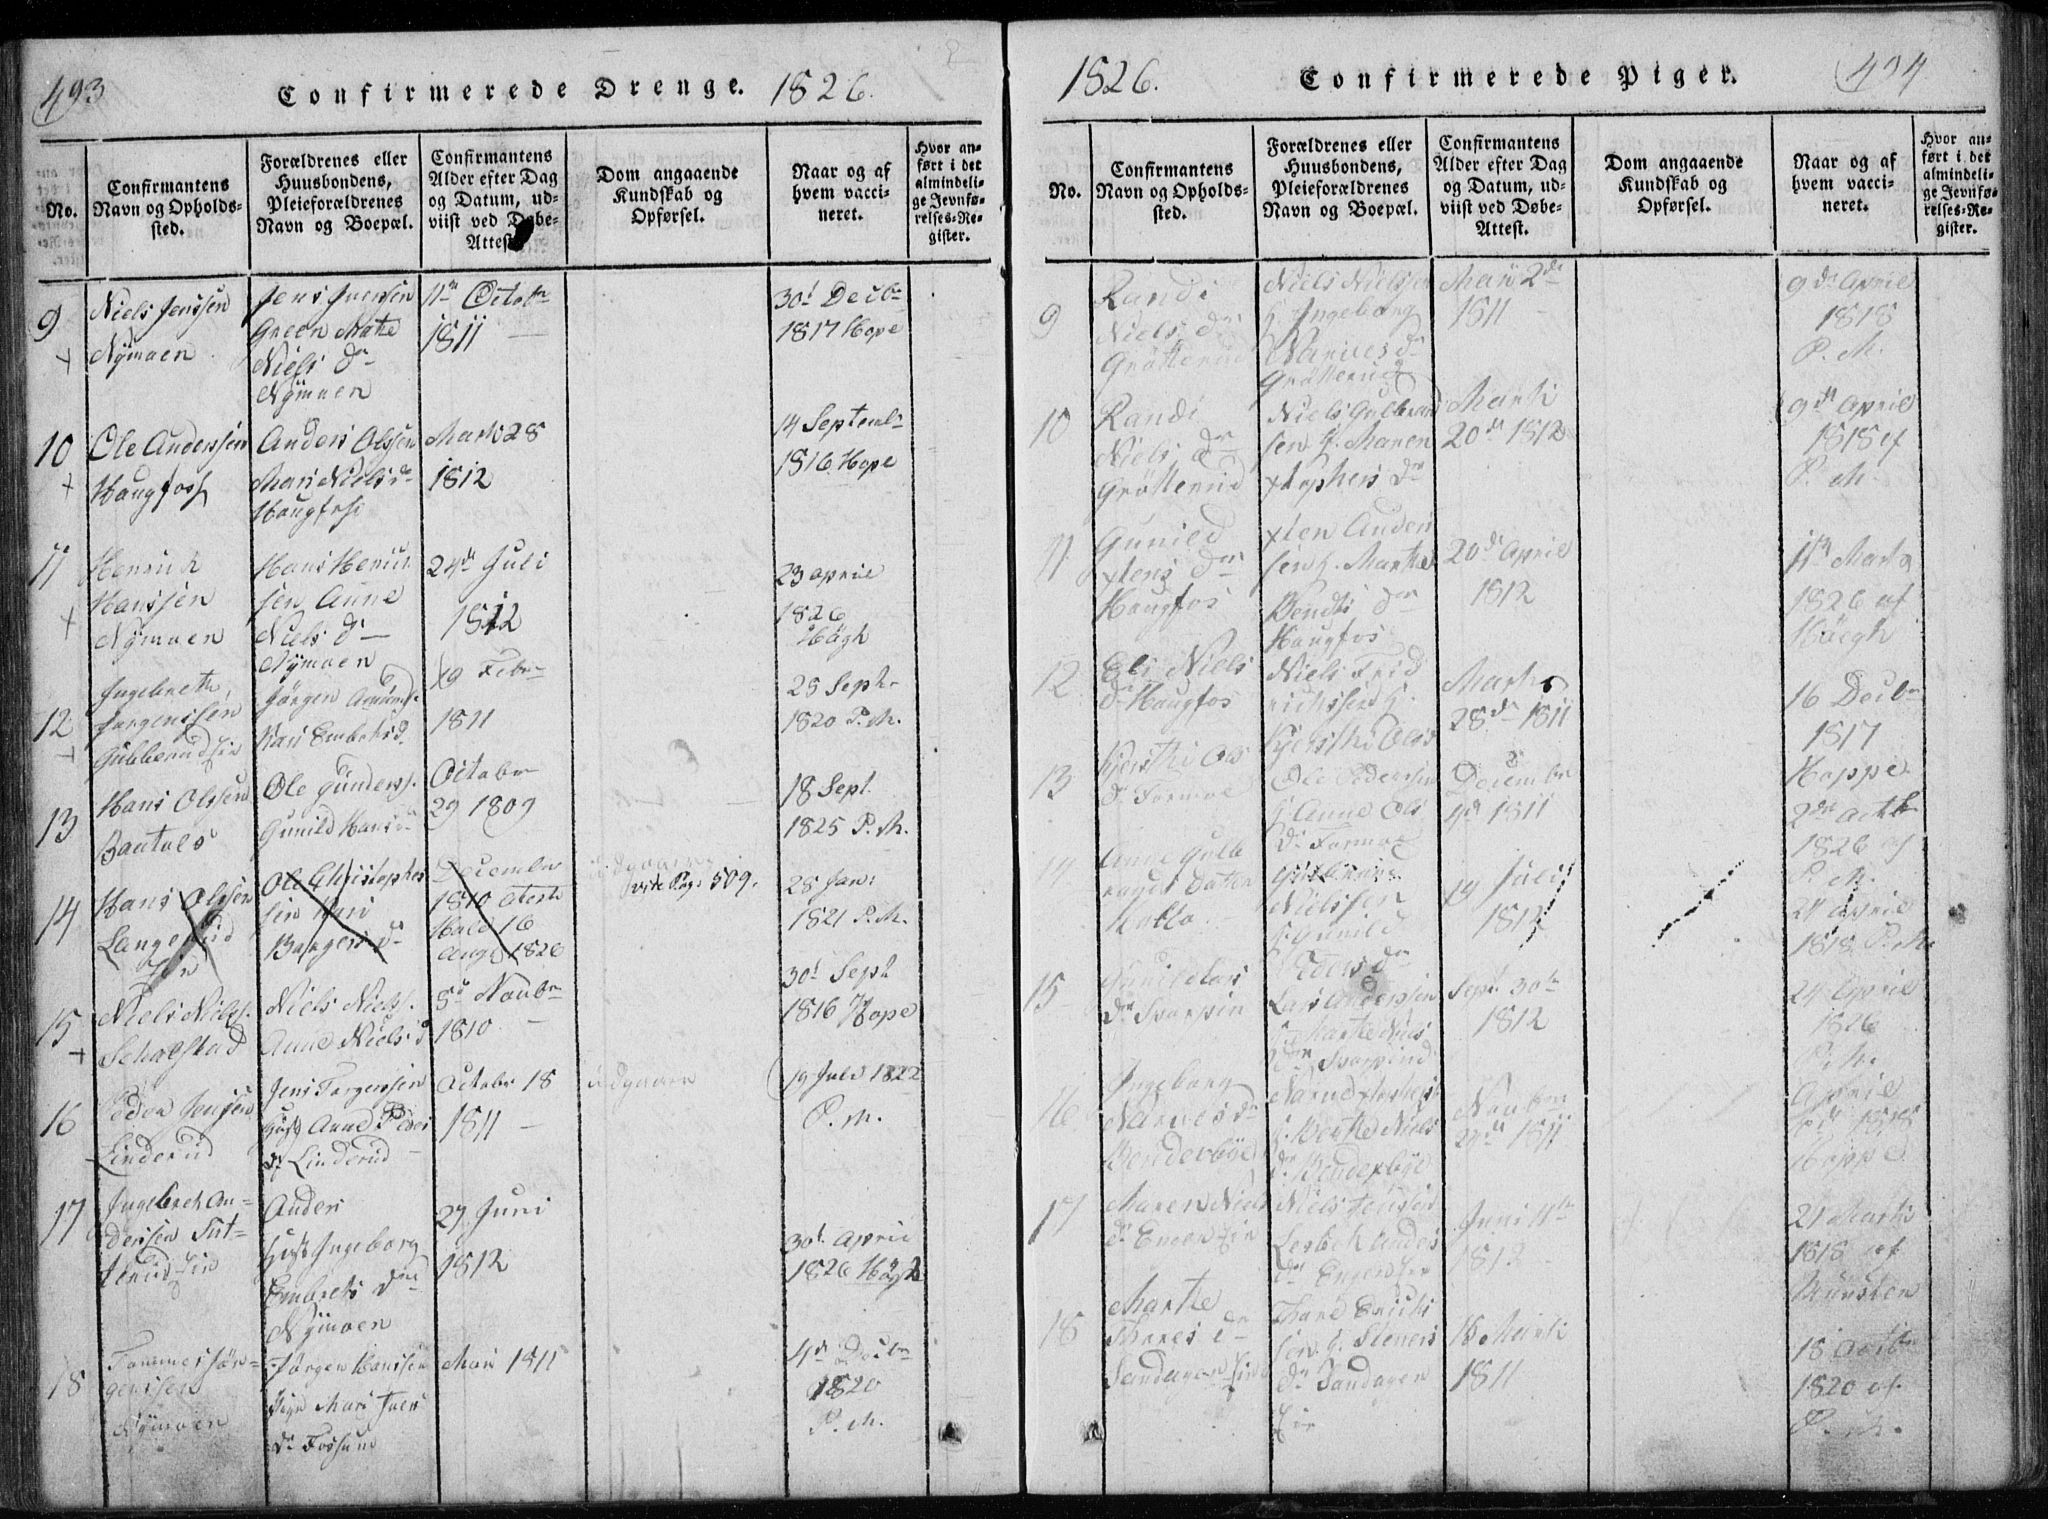 493
Confirmerede Drenge. 1826.
No.
Confirmantens Navn og Opholdssted.
Forældrenes eller Huusbondens, Pleieforældrenes Navn og Boepæl.
Confirmantens Alder efter Dag og Datum, udviist ved Døbe-Attest.
Dom angaaende Kundskab og Opførsel.
Naar og af hvem vaccineret.
Hvor anført i det almindelige Jevnførelses-Register.
9
+
Niels Jenssen
Nÿmoen
Jens Jvensen
Green Mathe
Niels Dr
Nÿmoen
11te Octobr
1811
30d Decbr
1817 Hope
10
+
Ole Anderssen
Haugfoss
Anders Olssen
Mari Niels Dr
Haugfoss
Marti 28
1812
14 Septembr
1816 Hope
11
+
Henrich
Hanssen
Nÿmoen
Hans Henrich
sen Anne
Niels Dr
Nÿmoen
24de Juli
1812
23 April
1826
Högh
12
+
Ingebreth
Jørgenssen
Gubberud Ein
Jørgen
Kari Embrets d.
19 Febr
1811
25 Septr
1820 P. M.
13
Hans Olssen
Ole Gunders.
Gunild Hans
October
29 1809
18 Sept.
1825 P. M.
14
Hans Olssen
Langerud
Ein
Ole Christopher
sen Kari
Dr
December
1810 Attest
Hald 16
Aug: 1826
udgaaer
vide Pag: 509.
28 Jan:
1821 P. M.
15
+
Niels Niels.
Niels Niels.
Anne Niels d
5d Novbr
1810
30d Sept
1816 Hope
16
Peder Jenssen
Linderud
Jens Torgerssen
Hust Anne Peders
Dr Linderud
October 18
1811
udgaaer
19 Juli 1822
P. M.
17
Ingebreth An-
derssen
Ein
Anders
Hust Ingeborg
Embrets Dr
Nÿmoen
27 Juni
1812
30d April
1826 Högh
18
Tommes Jør-
genssen
Nÿmoen
Jørgen Hanssen
Mari Jvers
Dr Fossum
Mai 1811
4d Decbr
1820
P. M.
1826. Confirmerede Piger.
494
No.
Confirmantens Navn og Opholdssted.
Forældrenes eller Huusbondens, Pleieforældrenes Navn og Boepæl.
Confirmantens Alder efter Dag og Datum, udviist ved Døbe-Attest.
Dom angaaende Kundskab og Opførsel.
Naar og af hvem vaccineret.
Hvor anført i det almindelige Jevnførelses-Register.
9
Randi
Niels Dr
Grötterud
Niels Nielssen
H Ingeborg
Narves Dr
Grötterud
Mari 2de
1811
9de April
1818
P. M.
10
Randi
Niels Dr
Grötterud
Niels Gulbrand
sen H. Maren
xtophers Dr
Marti
20de 1812
9de April
1818 af
P. M.
11
Gunild
xtens Dr
Haugfos
xten Anders
sen H. Marthe
Bendts Dr
Haugfos
20de April
1812
11te Marti
1826 af
Höegh
12
Eli Niels
Dr Haugfos
Niels Frid
richssen H.
Kjersthi Ols
Marti
28de 1811
16 Decbr
1817
Hoppe
13
Kjersthi Ols
Dr Formoe
Ole Pederssen
H Anne Ols
Dr Formoe
December
1811
2de
1826 af
P. M.
14
Anne Gulb
rands Datter
Gulbrand
Nielssen
H Gunild
Peders Dr
19 Juli
1812
24 April
1818 P. M.
15
Gunild Lars
Dr
Lars Anderssen
H Marthe Niels
Dr
Sept 30te
1812
24 April
1826
P. M.
16
Ingeborg
Narves Dr
H. Berthe Niels
Dr
Novbr
1811
April
1818
Hoppe
17
Maren Niels
Dr Engen Ein
Niels Jenssen
Lisbeth Anders
Dr Engen Ein
Juni 11te
1812
21 Marti
1818 af
Münster
18
Marthe
Thores Dr
Sandagen Ein
Thore Erichs
sen H. Steners
Dr Sandagen
Ein
16 Marti
1811
18 Octbr
1820 af
P. M.